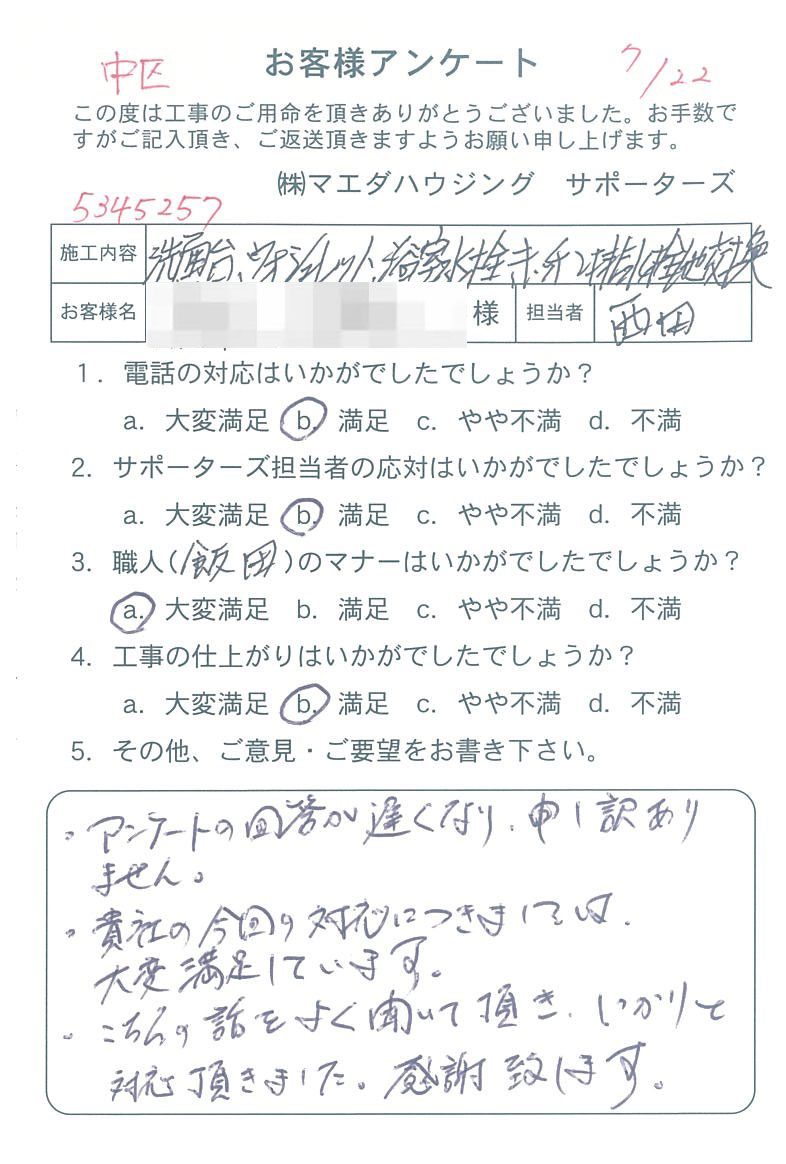 中区
お客様アンケート
7/22
この度は工事のご用命を頂きありがとうございました。お手数で
すがご記入頂き、ご返送頂きますようお願い申し上げます。
㈱マエダハウジング　サポーターズ
5345257
施工内容 洗面台、ウオシュレット、浴室水栓、キッチン排水栓他交換
お客様名 様 担当者 西田
1．電話の対応はいかがでしたでしょうか？
a．大変満足 b．満足 c．やや不満 d．不満
2．サポーターズ担当者の応対はいかがでしたでしょうか？
a．大変満足 b．満足 c．やや不満 d．不満
3．職人(飯田)のマナーはいかがでしたでしょうか？
a．大変満足 b．満足 c．やや不満 d．不満
4．工事の仕上がりはいかがでしたでしょうか？
a．大変満足 b．満足 c．やや不満 d．不満
5．その他、ご意見・ご要望をお書き下さい。
。アンケートの回答が遅くなり、申し訳あり
ません。
。貴社の今回の対応につきましては、
大変満足しています。
。こちらの話をよく聞いて頂き、しっかりと
対応頂きました。感謝致します。